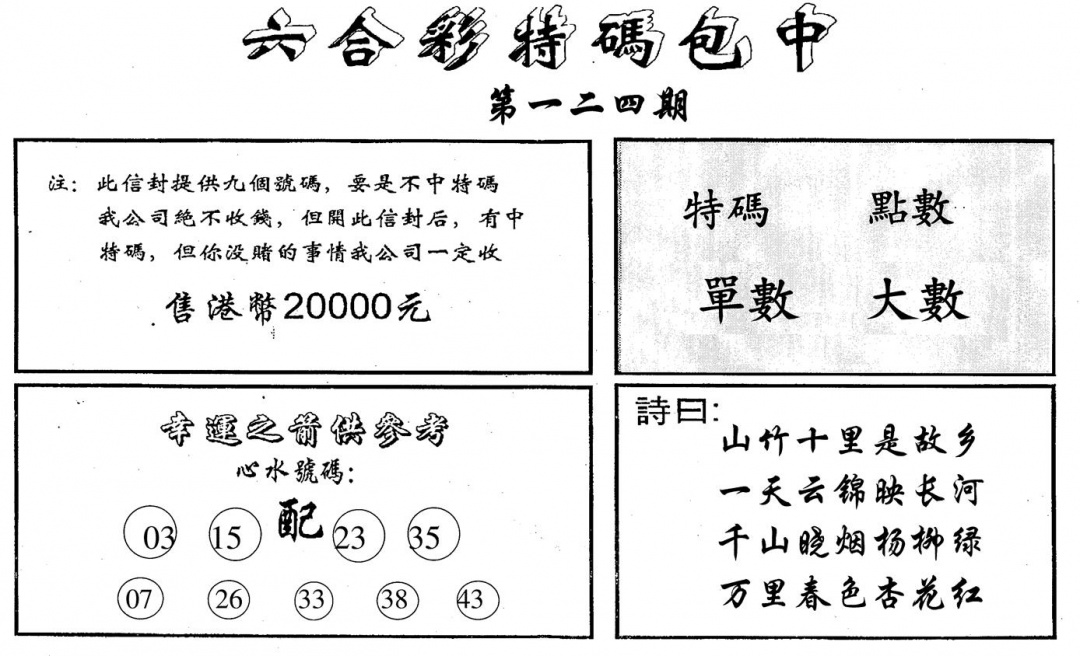 六合彩特碼包中
第一二四期
注：此信封提供九個號碼，要是不中特碼
我公司絕不收錢，但開此信封后，有中
特碼，但你没賭的事情我公司一定收
售港幣20000元
特碼 點數
單數 大數
幸運之箭供參考
心水號碼：
03 15 配 23 35
07 26 33 38 43
詩曰：
山竹十里是故乡
一天云锦映长河
千山晓烟杨柳绿
万里春色杏花红